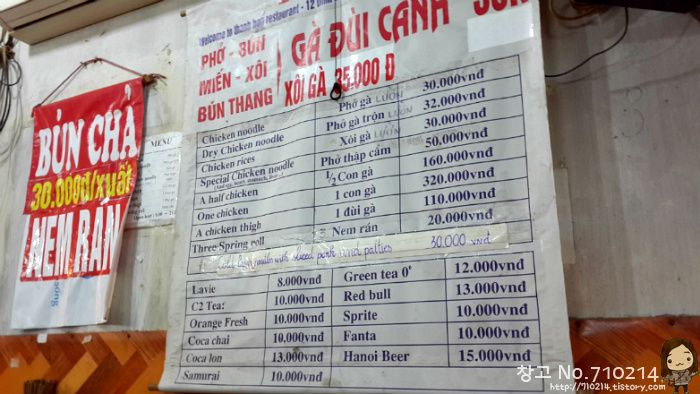 Welcome to thanh hop restaurant - 12 Đinh
PHỞ - BÚN
MIẾN - XÔI
BÚN THANG
GÀ ĐÙI CÁNH
XÔI GÀ 35.000 Đ
Chicken noodle Phở gà LƯỜN 30.000vnđ
Dry Chicken noodle Phở gà trộn LƯỜN 32.000vnđ
Chicken rices Xôi gà LƯỜN 30.000vnđ
Special Chicken noodle Phở thập cẩm 50.000vnđ
A half chicken 1/2 Con gà 160.000vnđ
One chicken 1 con gà 320.000vnđ
A chicken thigh 1 đùi gà 110.000vnđ
Three Spring roll 3 Nem rán 20.000vnđ
with sliced pork and patties 30.000 vnđ
Lavie 8.000vnđ Green tea 0° 12.000vnđ
C2 Tea: 10.000vnđ Red bull 13.000vnđ
Orange Fresh 10.000vnđ Sprite 10.000vnđ
Coca chai 10.000vnđ Fanta 10.000vnđ
Coca lon 13.000vnđ Hanoi Beer 15.000vnđ
Samurai 10.000vnđ
BÚN CHẢ
30.000đ/xuất
NEM RÁN
MENU
창고 No.710214
http://710214.tistory.com/